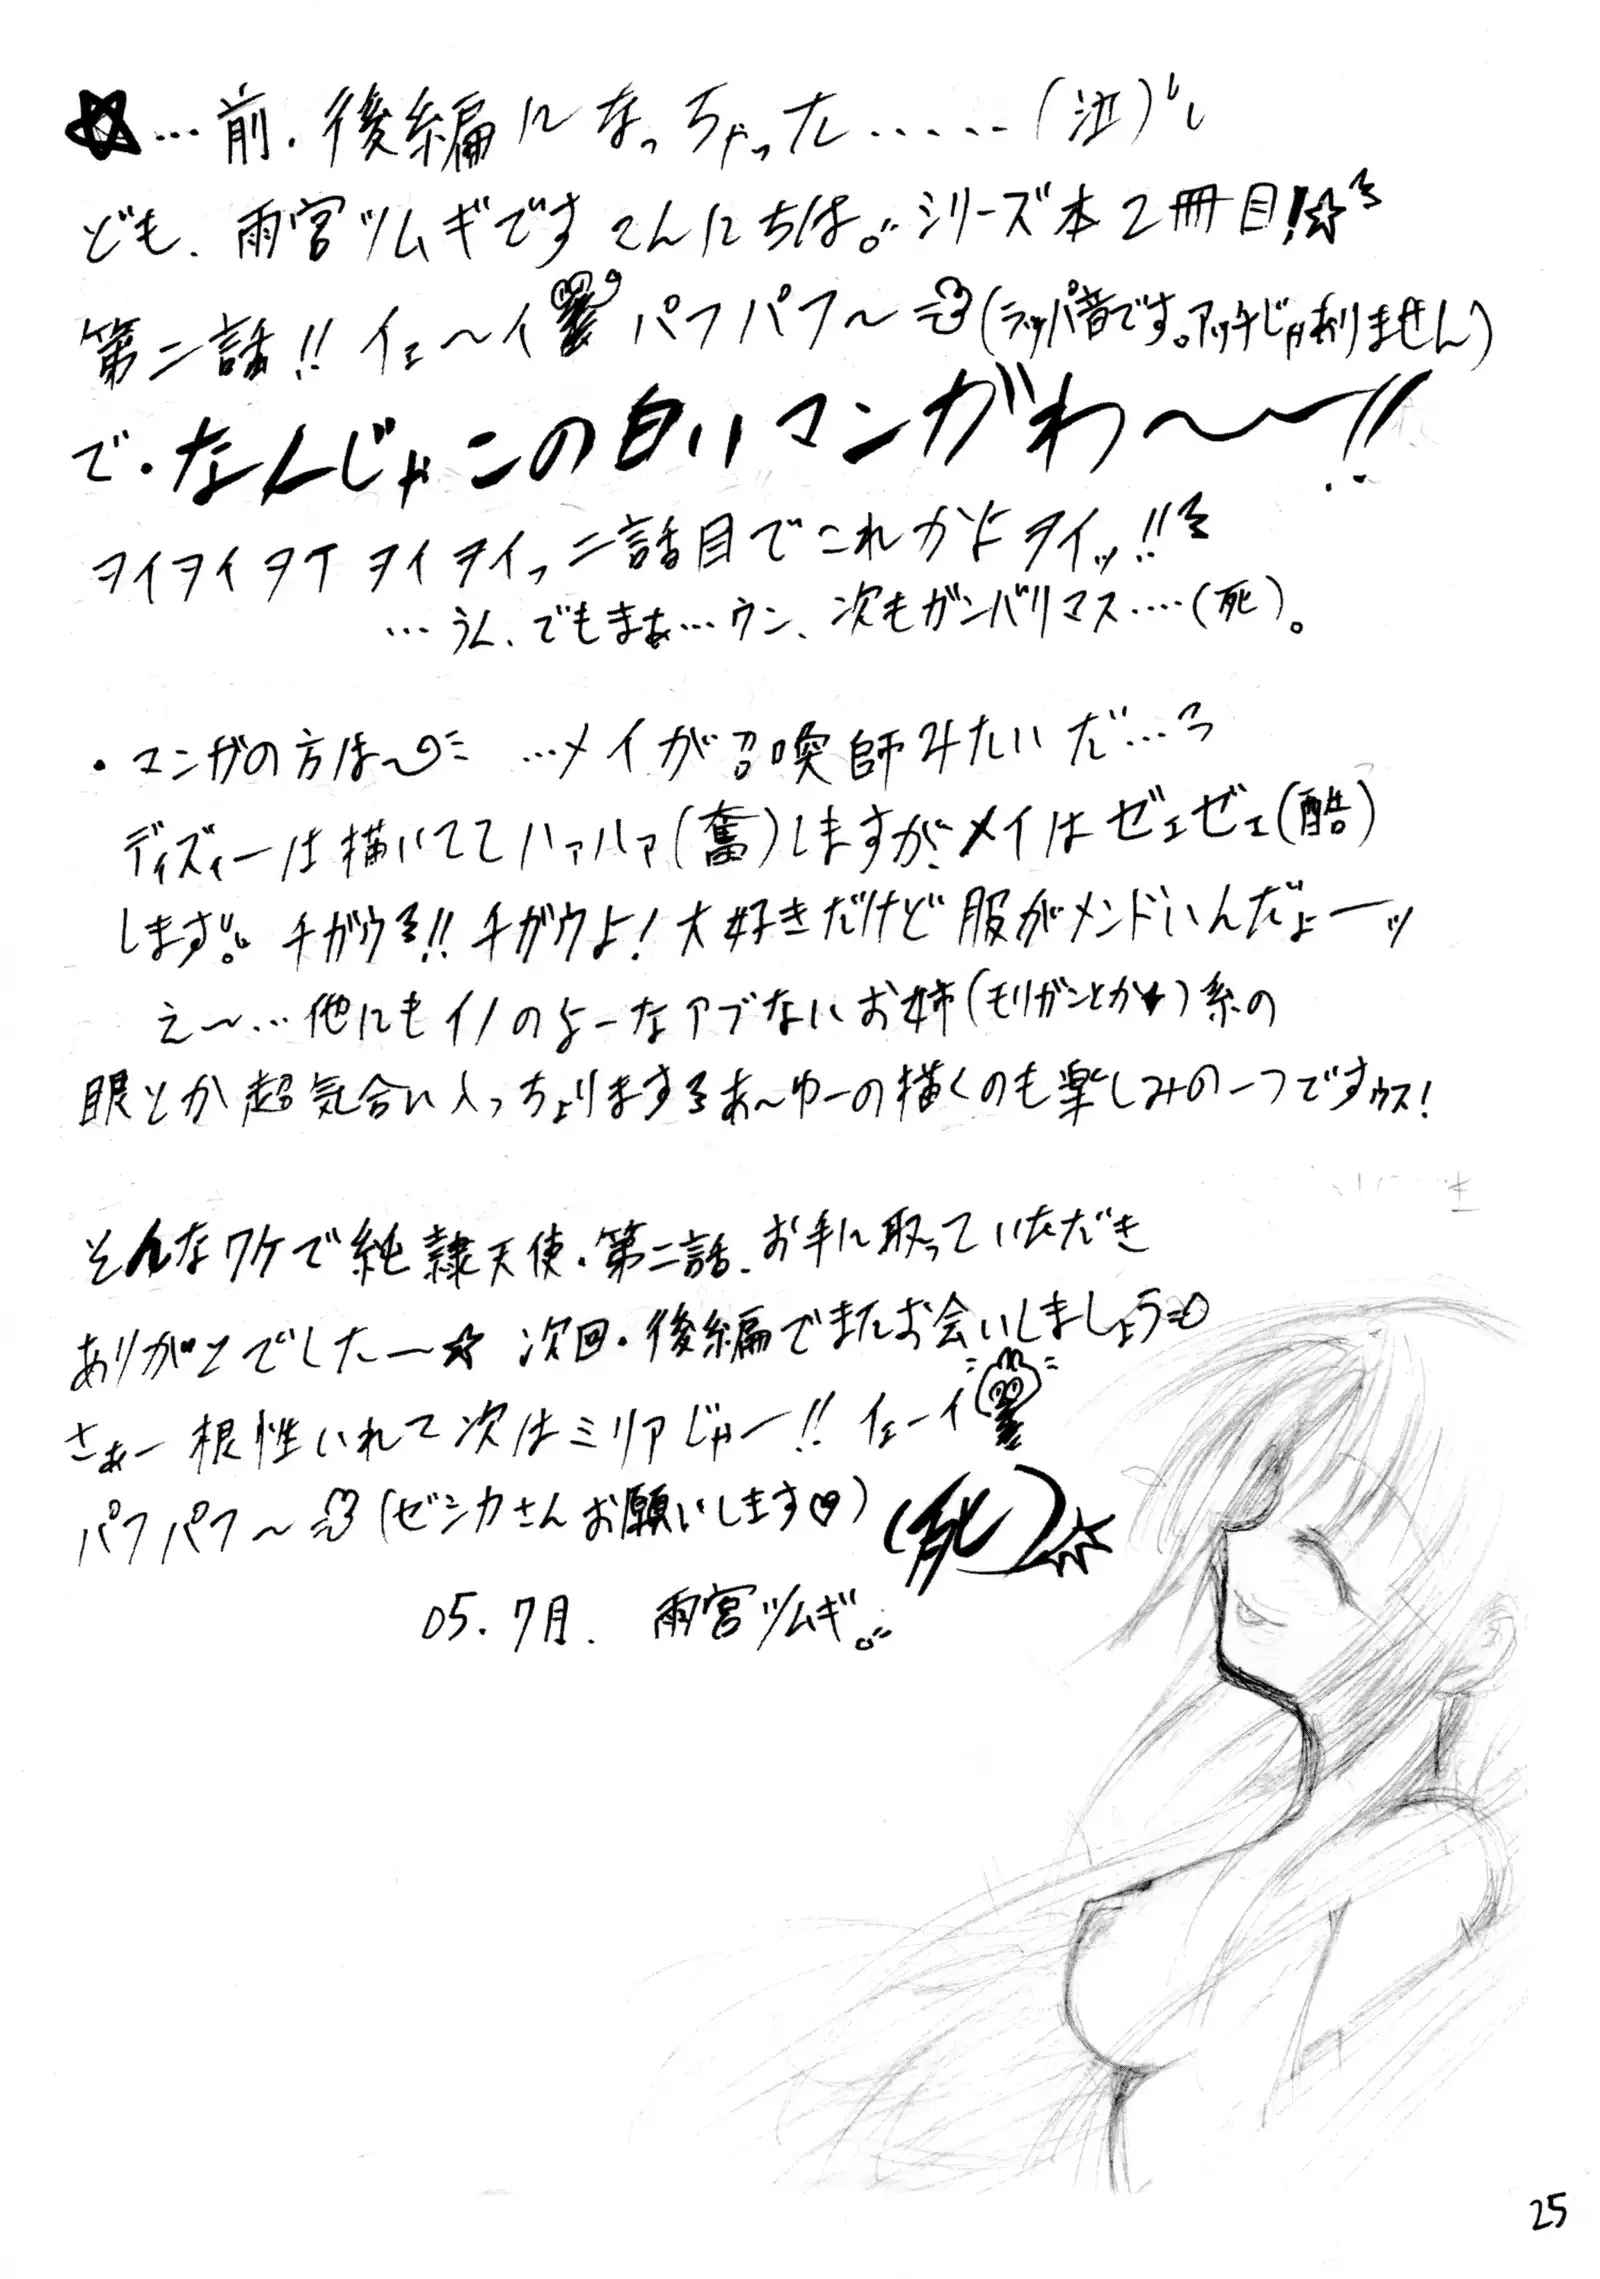 ☆…前・後編になっちゃった……(泣)
ども、雨宮ツムギですこんにちは。シリーズ本2冊目!☆
第二話!!イェ〜イ パフパフ〜(ラッパ音です。アッチじゃありません)
で・なんじゃこの白いマンガわ〜〜!!
ヲイヲイヲイヲイヲイっ二話目でこれかよヲイッ!!
…うん、でもまぁ…ウン、次もガンバリマス…(死)。
・マンガの方は〜 …メイが召喚師みたいだ…
ディズィーは描いててハァハァ(奮)しますが、メイはゼェゼェ(酷)
します。チガウ!!チガウよ!大好きだけど服がメンドいんだょーッ
え〜…他にもイノのよーなアブないお姉(モリガンとか★)系の
眼とか超気合い入っちょりますあ〜ゆーの描くのも楽しみの一つですゥス!
そんなワケで純隷天使・第二話、お手に取っていただき
ありがとでしたー☆ 次回・後編でまたお会いしましょう
さぁー根性いれて次はミリアじゃー!!イェーイ
パフパフ〜(ゼシカさんお願いします♡)(死)
05.7月. 雨宮ツムギ。
25